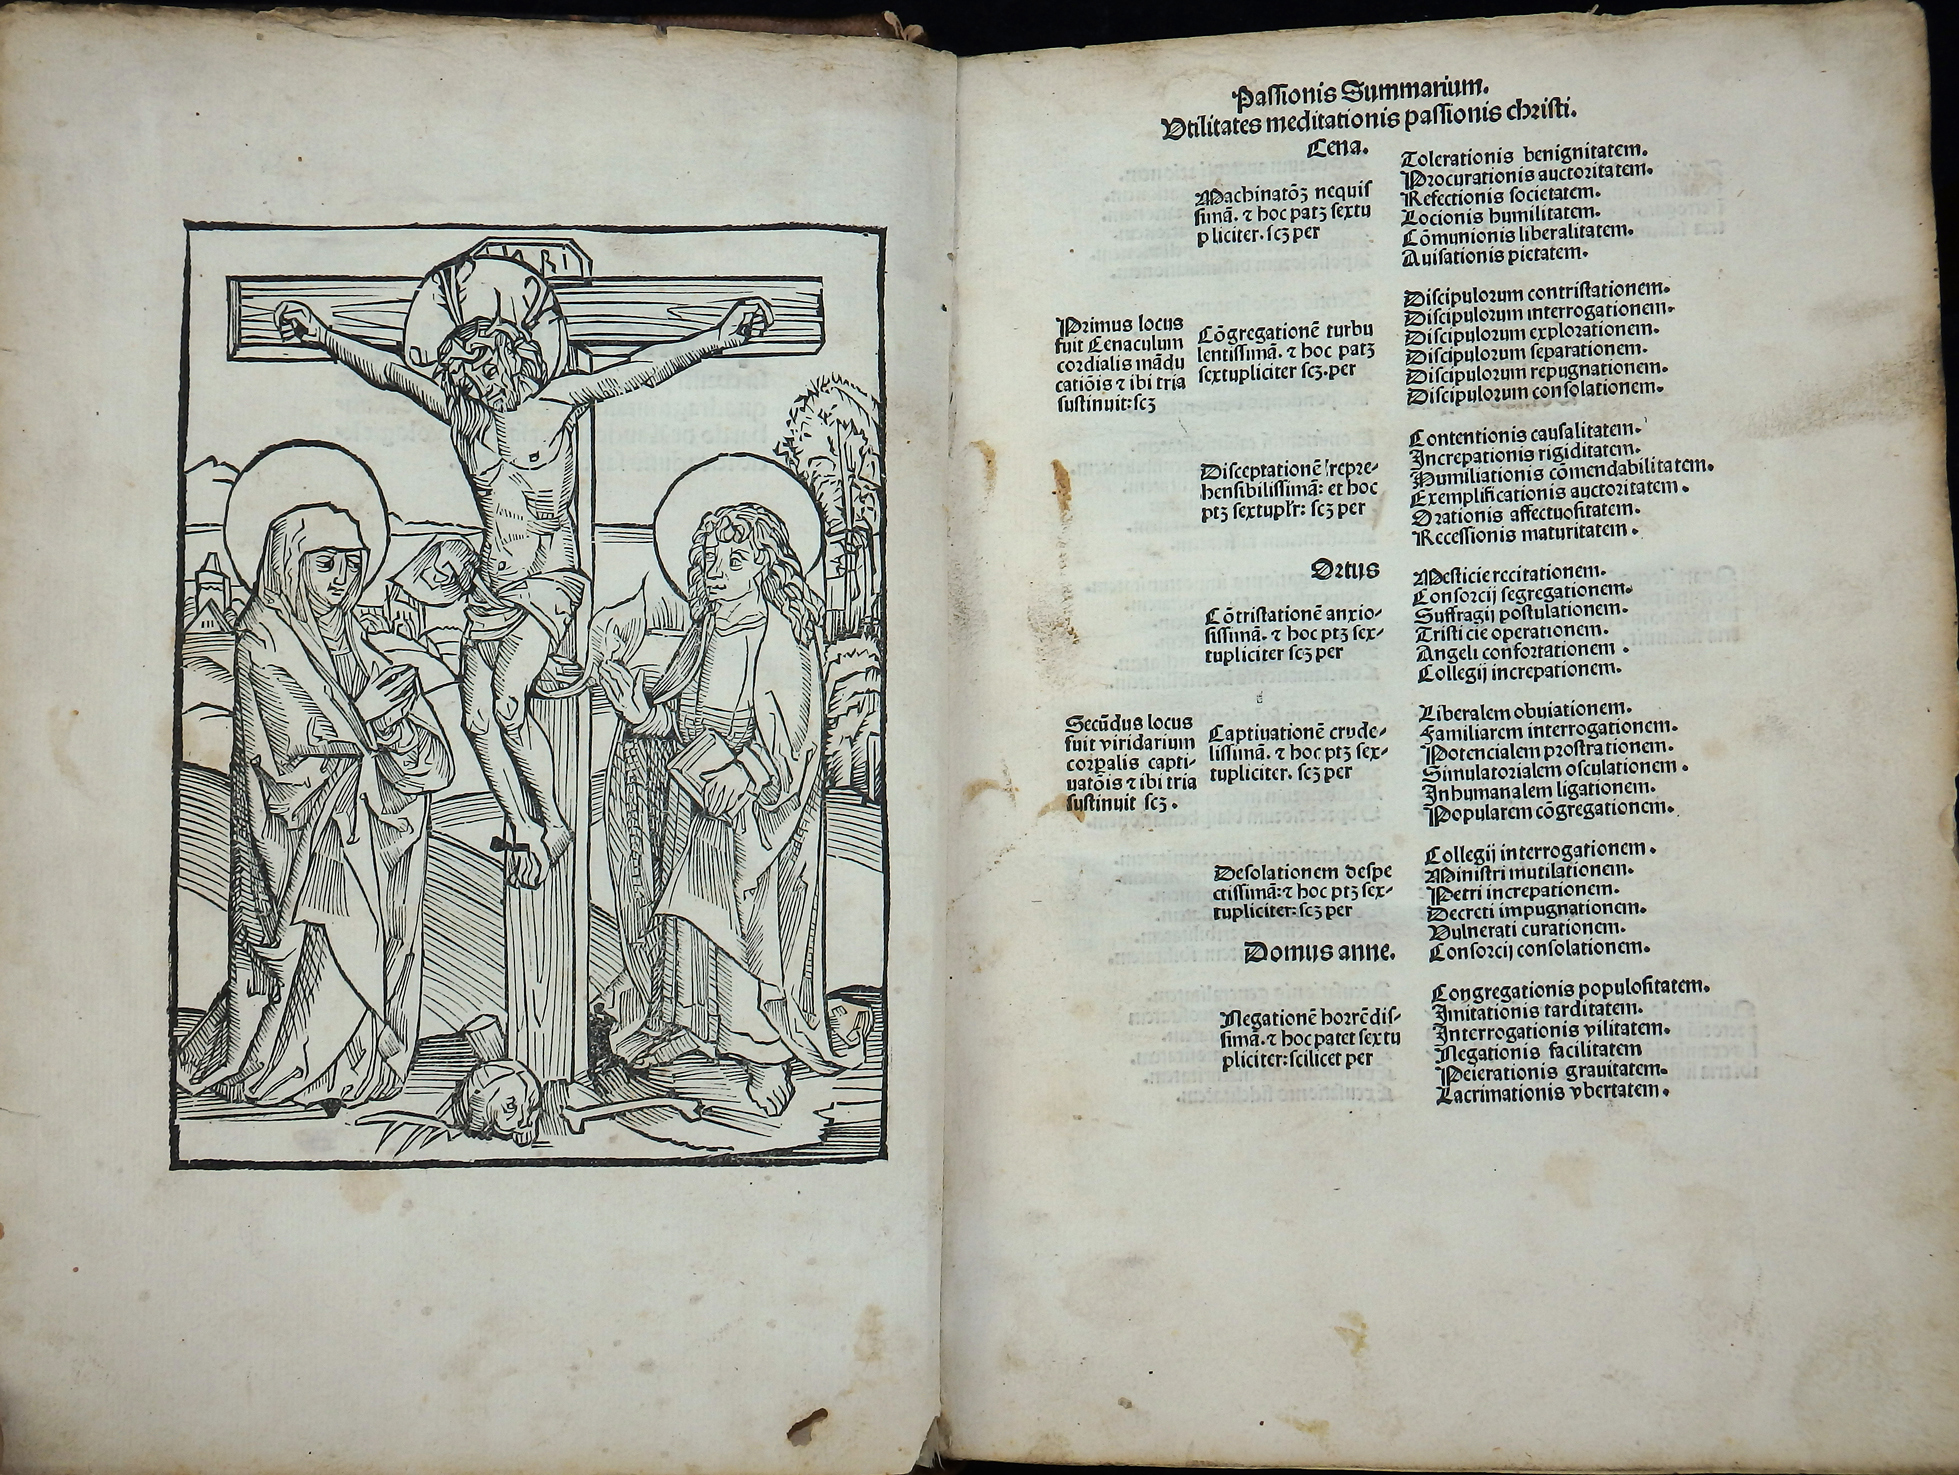 INRI
Passionis Summarium.
Utilitates meditationis passionis christi.
Cena.
Machinatōꝫ nequis
simā. ⁊ hoc patꝫ sextu
pliciter. scꝫ per
Tolerationis benignitatem.
Procurationis auctoritatem.
Refectionis societatem.
Locionis humilitatem.
Cōmunionis liberalitatem.
Auisationis pietatem.
Primus locus
fuit Cenaculum
cordialis mādu
catiōis ⁊ ibi tria
sustinuit: scꝫ
Cōgregationē turbu
lentissimā. ⁊ hoc patꝫ
sextupliciter scꝫ. per
Discipulorum contristationem.
Discipulorum interrogationem.
Discipulorum explorationem.
Discipulorum separationem.
Discipulorum repugnationem.
Discipulorum consolationem.
Disceptationē repre-
hensibilissimā: et hoc
ptꝫ sextuplr̄: scꝫ per
Contentionis causalitatem.
Increpationis rigiditatem.
Humiliationis cōmendabilitatem.
Exemplificationis auctoritatem.
Orationis affectuositatem.
Recessionis maturitatem.
Ortus
Cōtristationē anxio-
sissimā. ⁊ hoc ptꝫ sex-
tupliciter scꝫ per
Mesticie recitationem.
Consorcij segregationem.
Suffragij postulationem.
Tristicie operationem.
Angeli confortationem.
Collegij increpationem.
Secūdus locus
fuit viridarium
corpalis capti-
uatōis ⁊ ibi tria
sustinuit scꝫ.
Captiuationē crude-
lissimā. ⁊ hoc ptꝫ sex-
tupliciter. scꝫ per
Liberalem obuiationem.
Familiarem interrogationem.
Potencialem prostrationem.
Simulatorialem osculationem.
Inhumanalem ligationem.
Popularem cōgregationem.
Desolationem despe
ctissimā: ⁊ hoc ptꝫ sex-
tupliciter: scꝫ per
Collegij interrogationem.
Ministri mutilationem.
Petri increpationem.
Decreti impugnationem.
Vulnerati curationem.
Consorcij consolationem.
Domus anne.
Negationē horrēdis-
simā. ⁊ hoc patet sextu
pliciter: scilicet per
Congregationis populositatem.
Imitationis tarditatem.
Interrogationis vilitatem.
Negationis facilitatem
Peierationis grauitatem.
Lacrimationis vbertatem.